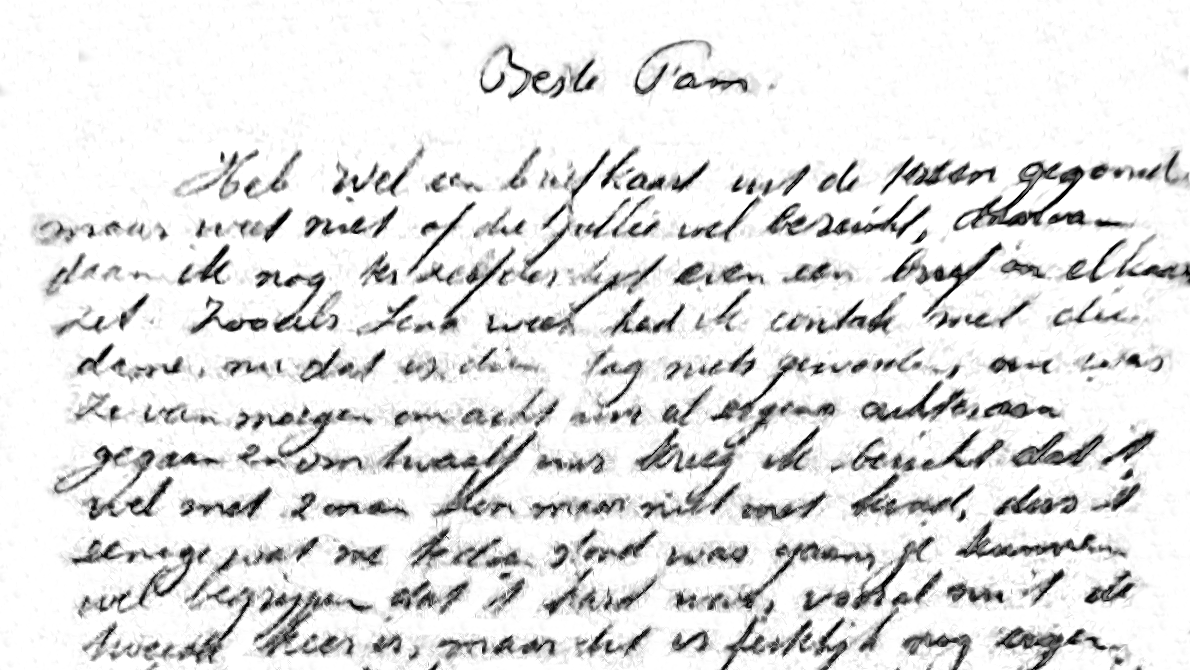 Beste Fam.
Heb wel een briefkaart uit de trein gegooid
maar weet niet of die jullie wel bereikt, daarom
daarom ik nog ter zelfder tijd even een brief aan elkaar
zet. Zooals Lena weet had ik contakt met die
dame, nu dat is dien dag niets geworden, nu was
ze van morgen om acht uur al ergens achteraan
gegaan en om twaalf uur kreeg ik bericht dat 't
wel met 2 man kon maar niet met kind, dus 't
eenige wat me te doen stond was gaan, je kunnen
wel begrijpen dat 't hard was, vooral nu 't de
tweede keer is, maar dit is feitelijk nog erger